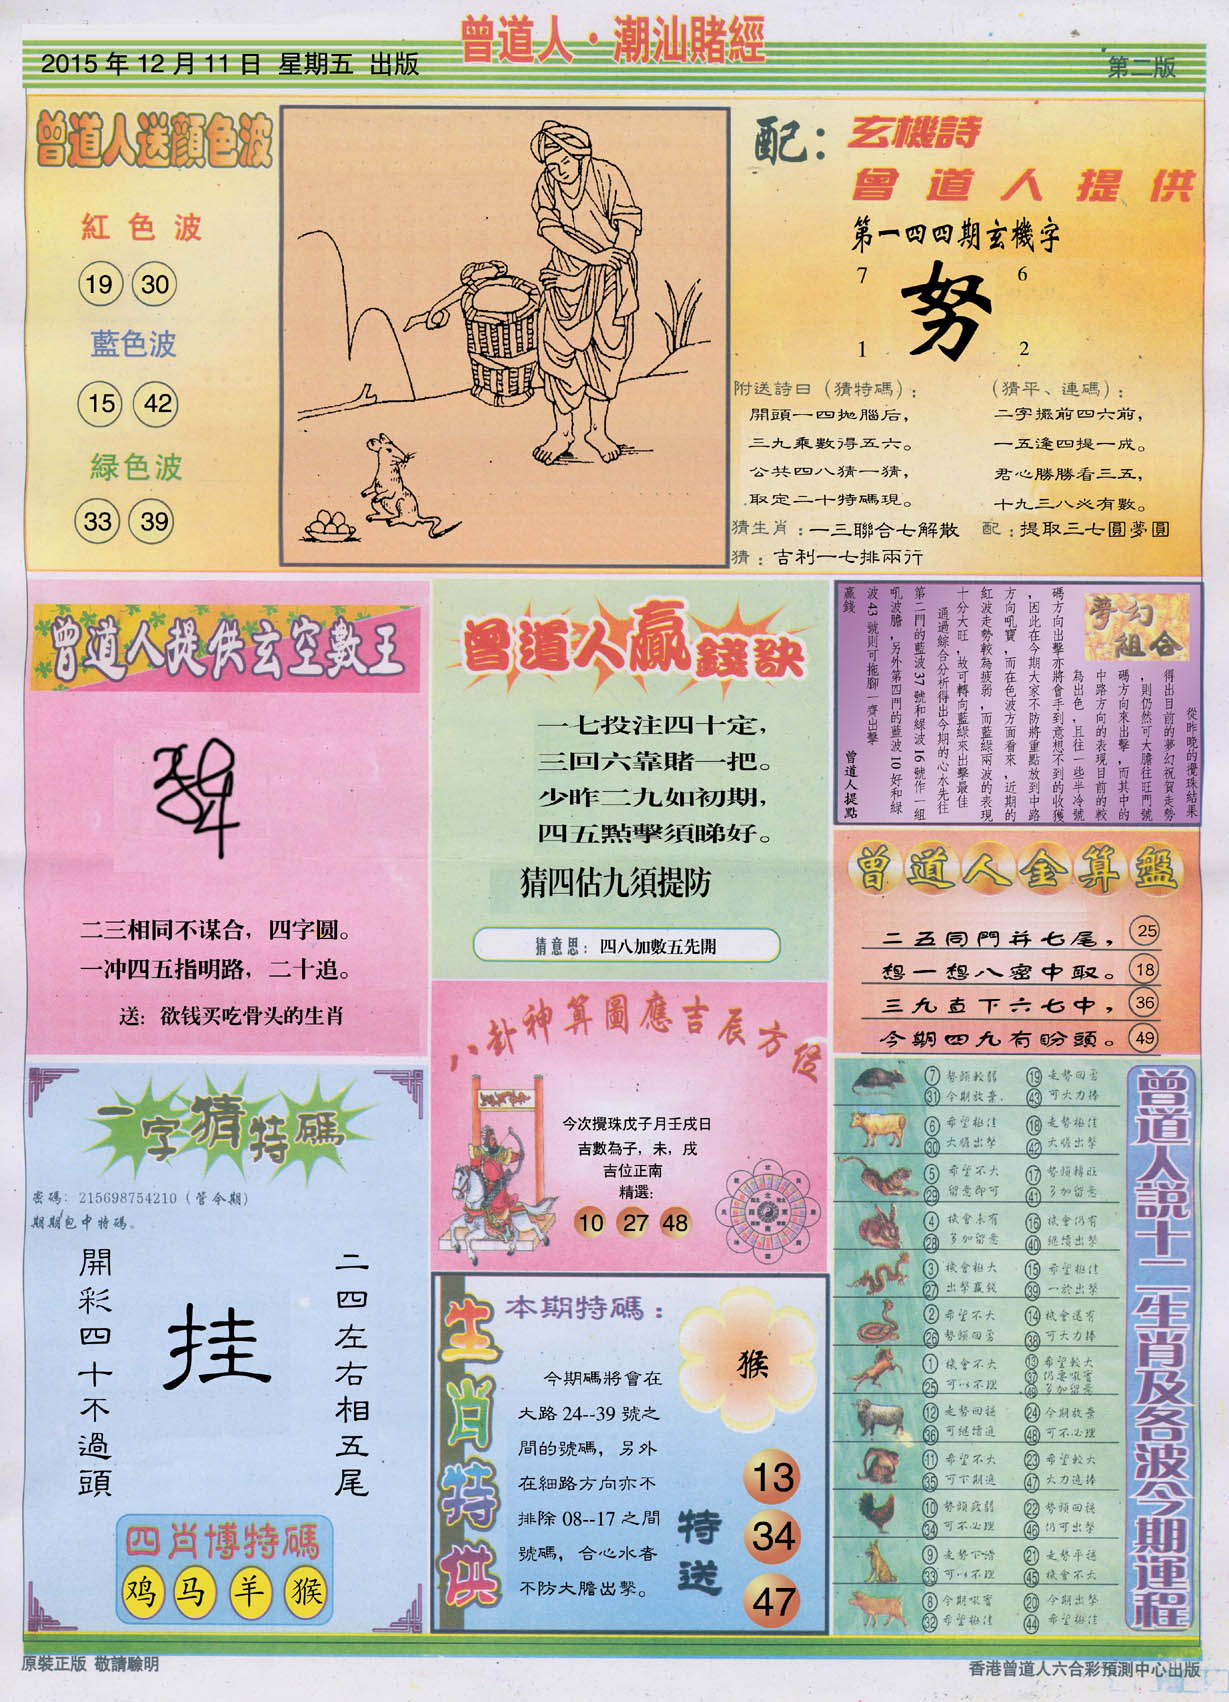 曾道人·潮汕賭經
2015 年 12 月 11 日  星期五  出版
第二版
曾道人送顏色波
紅色波
19 30
藍色波
15 42
緑色波
33 39
配：
玄機詩
曾道人提供
第一四四期玄機字
7 6
努
1 2
附送詩曰（猜特碼）：
開頭一四拋腦后，
三九乘數得五六。
公共四八猜一猜，
取定二十特碼現。
（猜平、連碼）：
二字擺前四六前，
一五逢四提一成。
君心勝勝看三五，
十九三八必有數。
猜生肖：一三聯合七解散
配：提取三七圓夢圓
猜：吉利一七排兩行
曾道人提供玄空數王
二三相同不谋合，四字圆。
一冲四五指明路，二十追。
送：欲钱买吃骨头的生肖
曾道人贏錢訣
一七投注四十定，
三回六靠賭一把。
少昨二九如初期，
四五點擊須睇好。
猜四估九須提防
猜意思：四八加數五先開
夢幻組合
從昨晚的攪珠結果
得出目前的夢幻祝賀走勢
，則仍然可大膽往旺門號
碼方向來出擊，而其中的
中路方向的表現目前的較
為出色，且往一些半冷號
碼方向出擊亦將會手到意想不到的收獲
，因此在今期大家不防將重點放到中路
方向吼寶，而在色波方面看來，近期的
紅波走勢較為疲弱，而藍綠兩波的表現
十分大旺，故可轉向藍綠來出擊最佳
通過綜合分析得出今期的心水先往
第二門的藍波 37 號和綠波 16 號作一組
吼波膽，另外第四門的藍波 10 好和綠
波 43 號則可拖腳一齊出擊
贏錢
曾道人提點
曾道人金算盤
二五同門并七尾， 25
想一想八密中取。 18
三九直下六七中， 36
今期四九有盼頭。 49
八卦神算圖應吉辰方位
今次攪珠戊子月壬戌日
吉數為子，未，戌
吉位正南
精選：
10 27 48
一字猜特碼
密碼：215698754210（管今期）
期期包中特碼。
開彩四十不過頭
挂
二四左右相五尾
四肖博特碼
鸡 马 羊 猴
生肖特供
本期特碼：
猴
今期碼將會在
大路 24--39 號之
間的號碼，另外
在細路方向亦不
排除 08--17 之間
號碼，合心水者
不防大膽出擊。
特送
13
34
47
曾道人説十二生肖及各波今期運程
7 勢頭較弱 19 走勢回勇
31 今期放棄 43 可大力捧
6 希望極佳 18 走勢極佳
30 大膽出擊 42 大膽出擊
5 希望不大 17 勢頭轉旺
29 留意即可 41 多加留意
4 機會未有 16 機會仍有
28 多加留意 40 繼續出擊
3 機會極大 15 希望極佳
27 出擊贏錢 39 一於出擊
2 希望不大 14 機會還有
26 勢頭回勇 38 可大力捧
1 機會不大 13 希望較大
25 可以不理 37 仍要吸寶
49 多加留意
12 走勢回穩 24 今期放棄
36 可繼續追 48 可不必理
11 希望不大 23 希望較大
35 可下期追 47 大力追捧
10 勢頭疲弱 22 勢頭回穩
34 可不必理 46 仍可出擊
9 走勢下滑 21 走勢平穩
33 可以不理 45 機會不大
8 今期吸寶 20 今期出擊
32 希望極佳 44 希望極佳
原裝正版  敬請驗明
香港曾道人六合彩預測中心出版